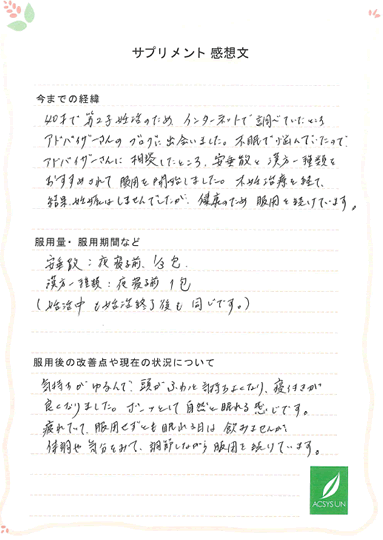 サプリメント 感想文
今までの経緯
40才で第2子妊活のため、インターネットで調べていたところ
アドバイザーさんのブログに出会いました。不眠で悩んでいたので、
アドバイザーさんに相談したところ、安垂散と漢方一種類を
おすすめされて服用を開始しました。不妊治療を経て、
結果、妊娠はしませんでしたが、健康のため服用を続けています。
服用量・服用期間など
安垂散:夜寝る前、1/3包
漢方一種類:夜寝る前 1包
(妊活中も妊活終了後も同じです。)
服用後の改善点や現在の状況について
気持ちがゆるんで、頭がふわっと気持ちよくなり、寝付きが
良くなりました。ボーッとして自然と眠れる感じです。
疲れていて、服用せずとも眠れる日は飲みませんが、
体調や気分をみて、調節しながら服用を続けています。
ACSYS UN